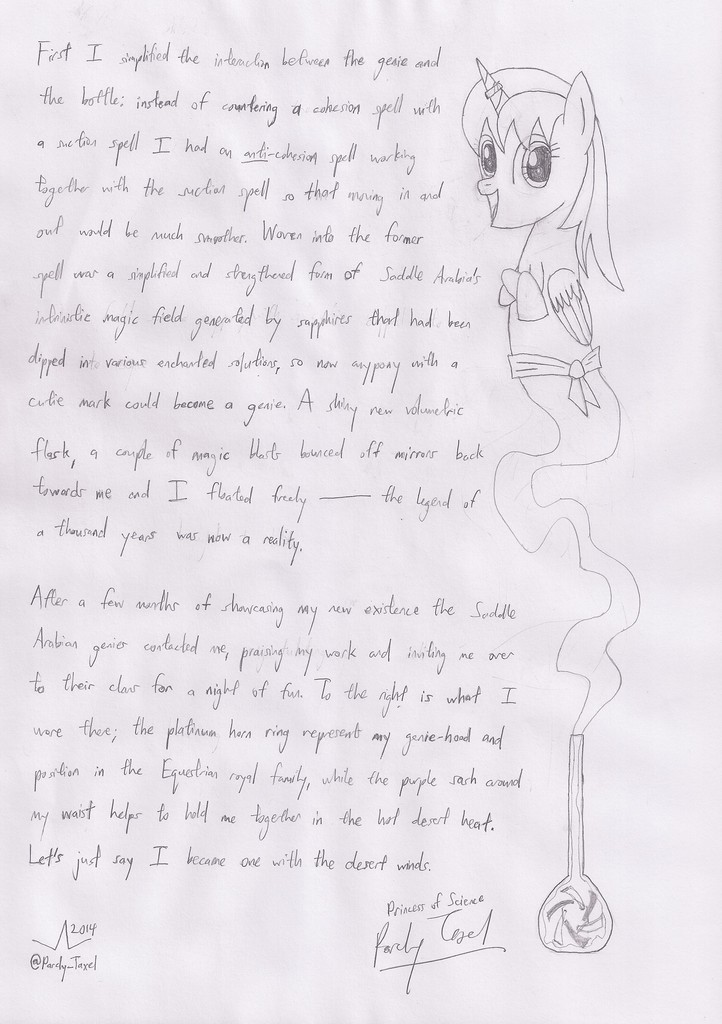 First I simplified the interaction between the genie and
the bottle; instead of countering a cohesion spell with
a suction spell I had an anti-cohesion spell working
together with the suction spell so that moving in and
out would be much smoother. Woven into the former
spell was a simplified and strengthened form of Saddle Arabia's
intrinistic magic field generated by sapphires that had been
dipped into various enchanted solutions, so now anypony with a
cutie mark could become a genie. A shiny new volumetric
flask, a couple of magic blasts bounced off mirrors back
towards me and I floated freely — the legend of
a thousand years was now a reality.
After a few months of showcasing my new existence the Saddle
Arabian genies contacted me, praising my work and inviting me over
to their clans for a night of fun. To the right is what I
wore there; the platinum horn ring represents my genie-hood and
position in the Equestrian royal family, while the purple sash around
my waist helps to hold me together in the hot desert heat.
Let's just say I became one with the desert winds.
Princess of Science
Parcly Taxel
2014
@Parcly_Taxel